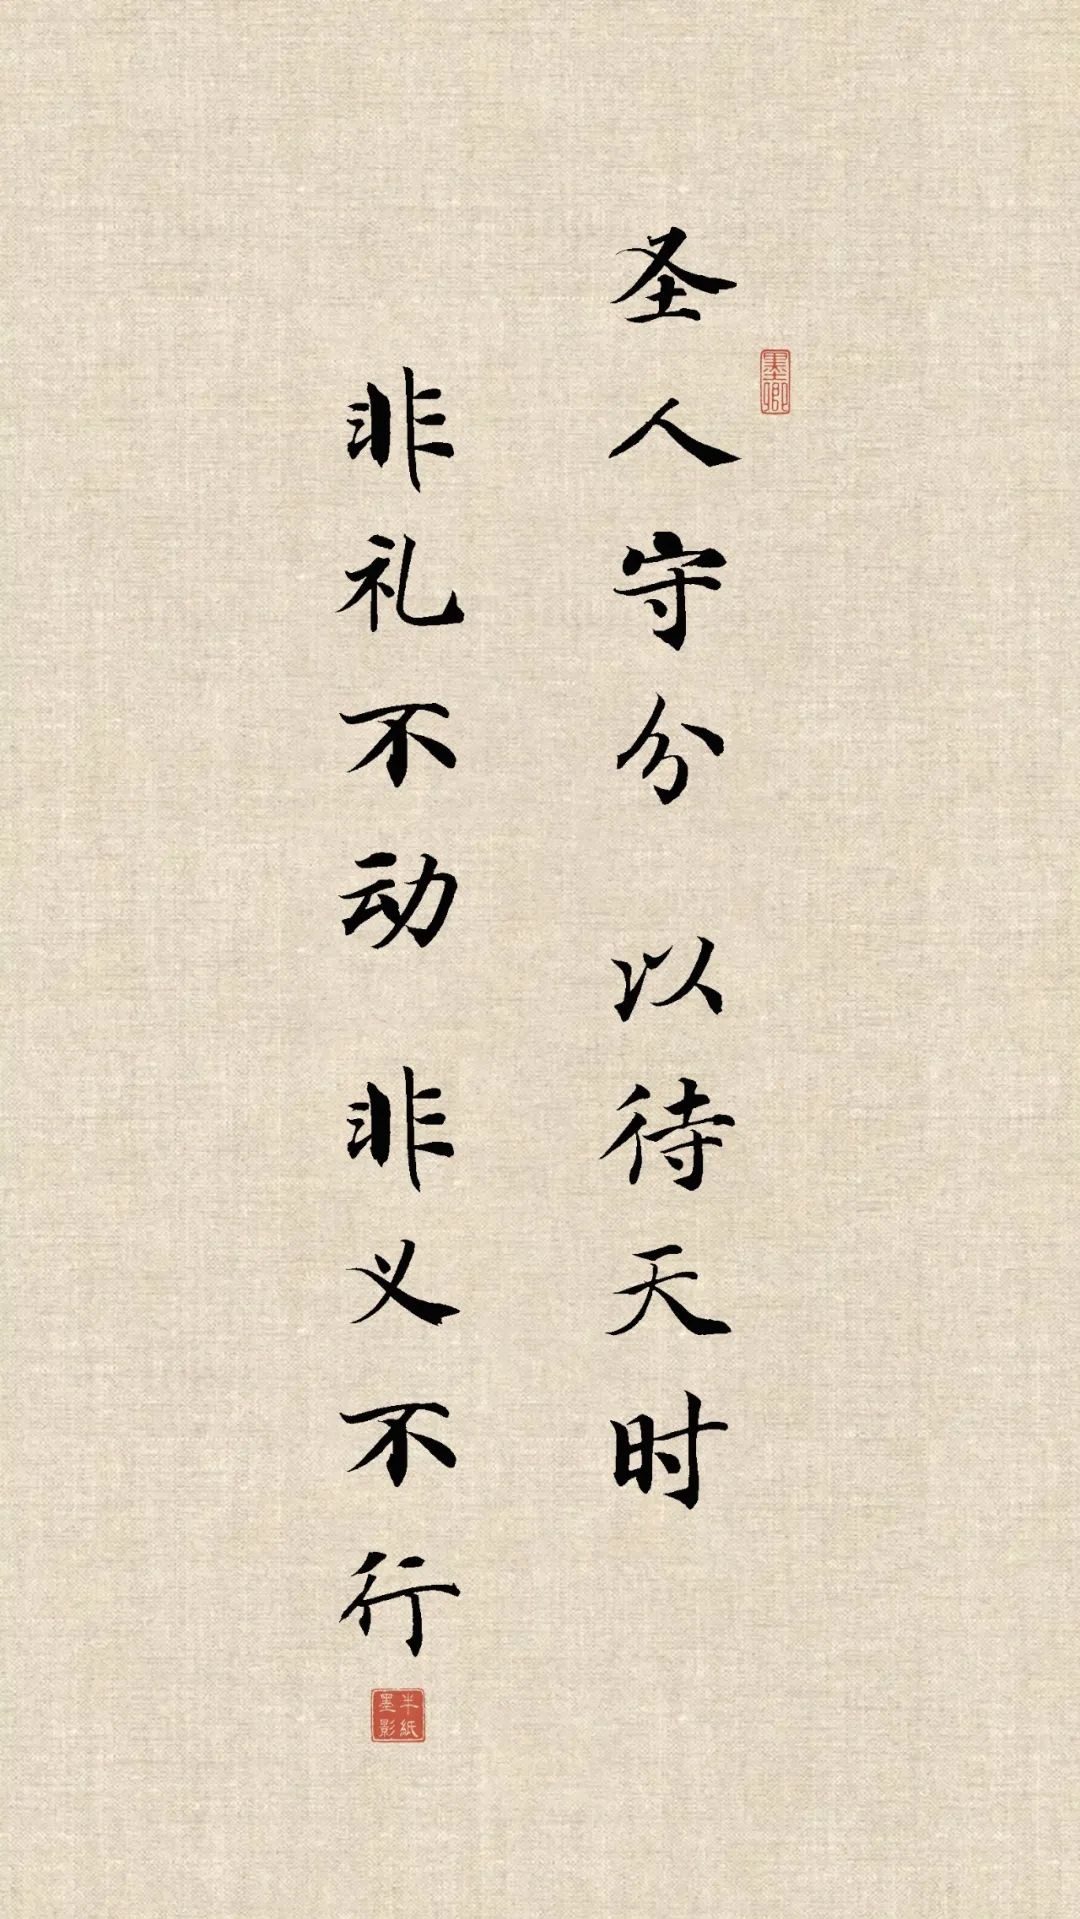 圣人守分 以待天时
墨卿
非礼不动 非义不行
半纸
墨影